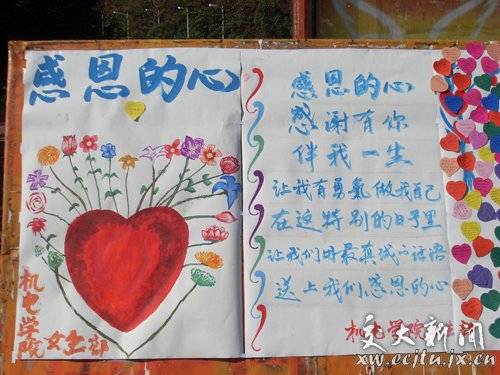 感恩的心
机电学院女生部
感恩的心
感谢有你
伴我一生
让我有勇氣做我自己
在这特别的日子里
让我们用最真诚的话语
送上我们感恩的心
机电学院女生部
交大新闻
xw.ecjtu.jx.cn